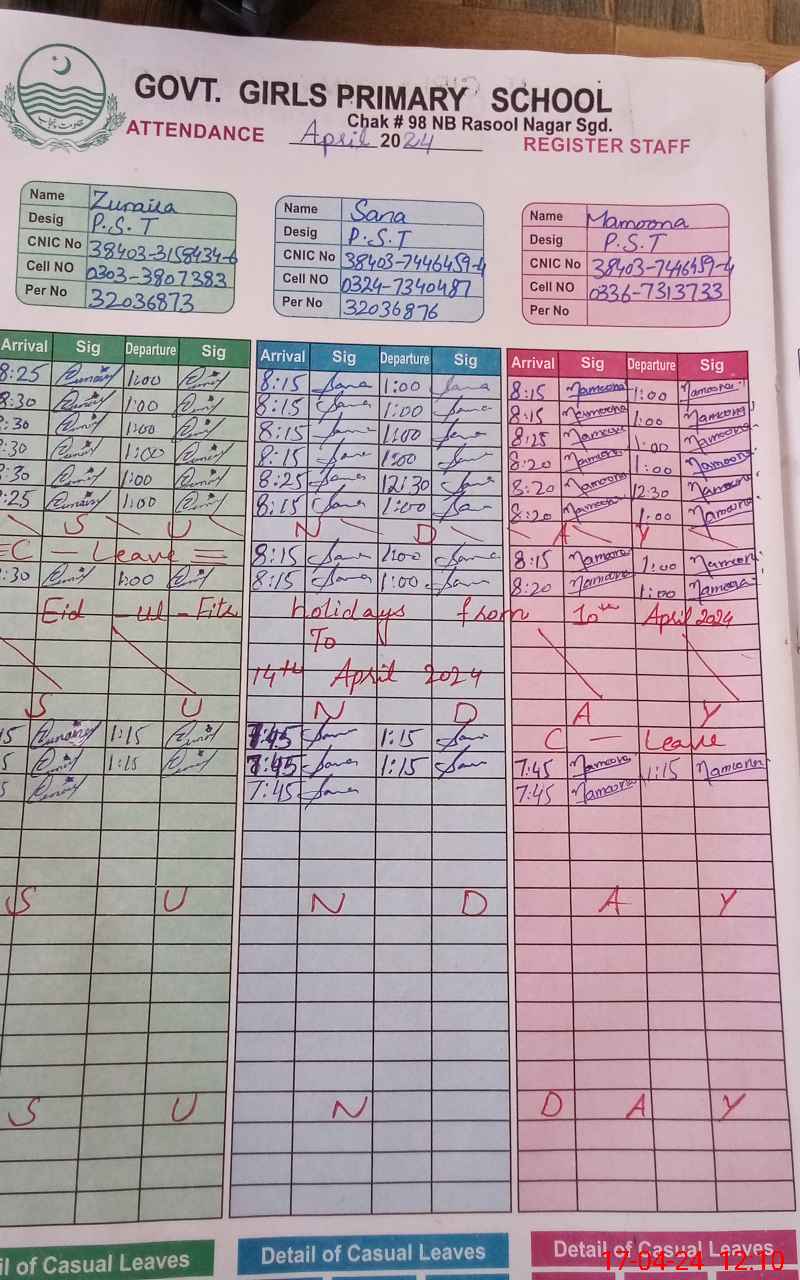 GOVT. GIRLS PRIMARY SCHOOL
Chak # 98 NB Rasool Nagar Sgd.
ATTENDANCE April 2024 REGISTER STAFF
حکومت پنجاب
Name Zunaira
Desig P.S.T
CNIC No 38403-3158434-6
Cell NO 0303-3807383
Per No 32036873
Name Sana
Desig P.S.T
CNIC No 38403-7446459-4
Cell NO 0324-7340487
Per No 32036876
Name Mamoona
Desig P.S.T
CNIC No 38403-7446459-4
Cell NO 0336-7313733
Per No
Arrival Sig Departure Sig Arrival Sig Departure Sig Arrival Sig Departure Sig
8:25 1:00 8:15 Sana 1:00 Sana 8:15 Mamoona 1:00 Mamoona
8:30 1:00 8:15 Sana 1:00 Sana 8:15 Mamoona 1:00 Mamoona
:30 1:00 8:15 Sana 1:00 Sana 8:25 Mamoona 1:00 Mamoona
:30 1:00 8:15 Sana 1:00 Sana 8:20 Mamoona 1:00 Mamoona
:30 1:00 8:25 Sana 12:30 Sana 8:20 Mamoona 12:30 Mamoona
:25 1:00 8:15 Sana 1:00 Sana 8:20 Mamoona 1:00 Mamoona
S U N D A Y
C - Leave 8:15 Sana 1:00 Sana 8:15 Mamoona 1:00 Mamoona
:30 1:00 8:15 Sana 1:00 Sana 8:20 Mamoona 1:00 Mamoona
Eid - ul - Fitr holidays from 10th April 2024
To
14th April 2024
S U N D A Y
5 1:15 7:45 Sana 1:15 Sana C - Leave
5 1:15 7:45 Sana 1:15 Sana 7:45 Mamoona 1:15 Mamoona
5 7:45 Sana 7:45 Mamoona
S U N D A Y
S U N D A Y
il of Casual Leaves Detail of Casual Leaves Detail of Casual Leaves
17-04-24 12.10